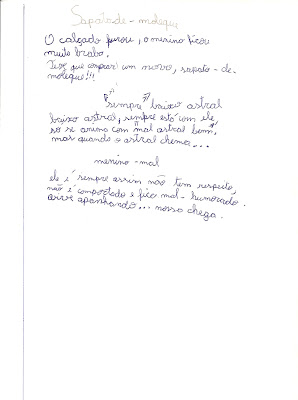 Sapato-de-moleque
O calçado furou, o menino ficou
muito brabo.
Teve que comprar um novo, sapato-de-
moleque!!!
"sempre" baixo astral
baixo astral, sempre está com ele,
só se anima com mal astral bem,
mas quando o astral chema...
menino-mal
ele é sempre assim não tem respeito,
não é comportado e fica mal-humorado.
vive apanhando... nossa chega.